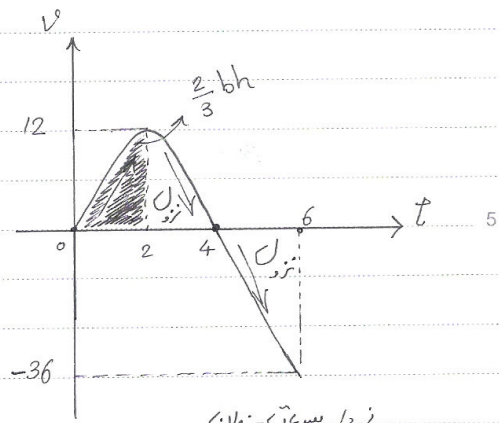 v
2/3 bh
12
نزول
6
t
0
2
4
5
نزول
-36